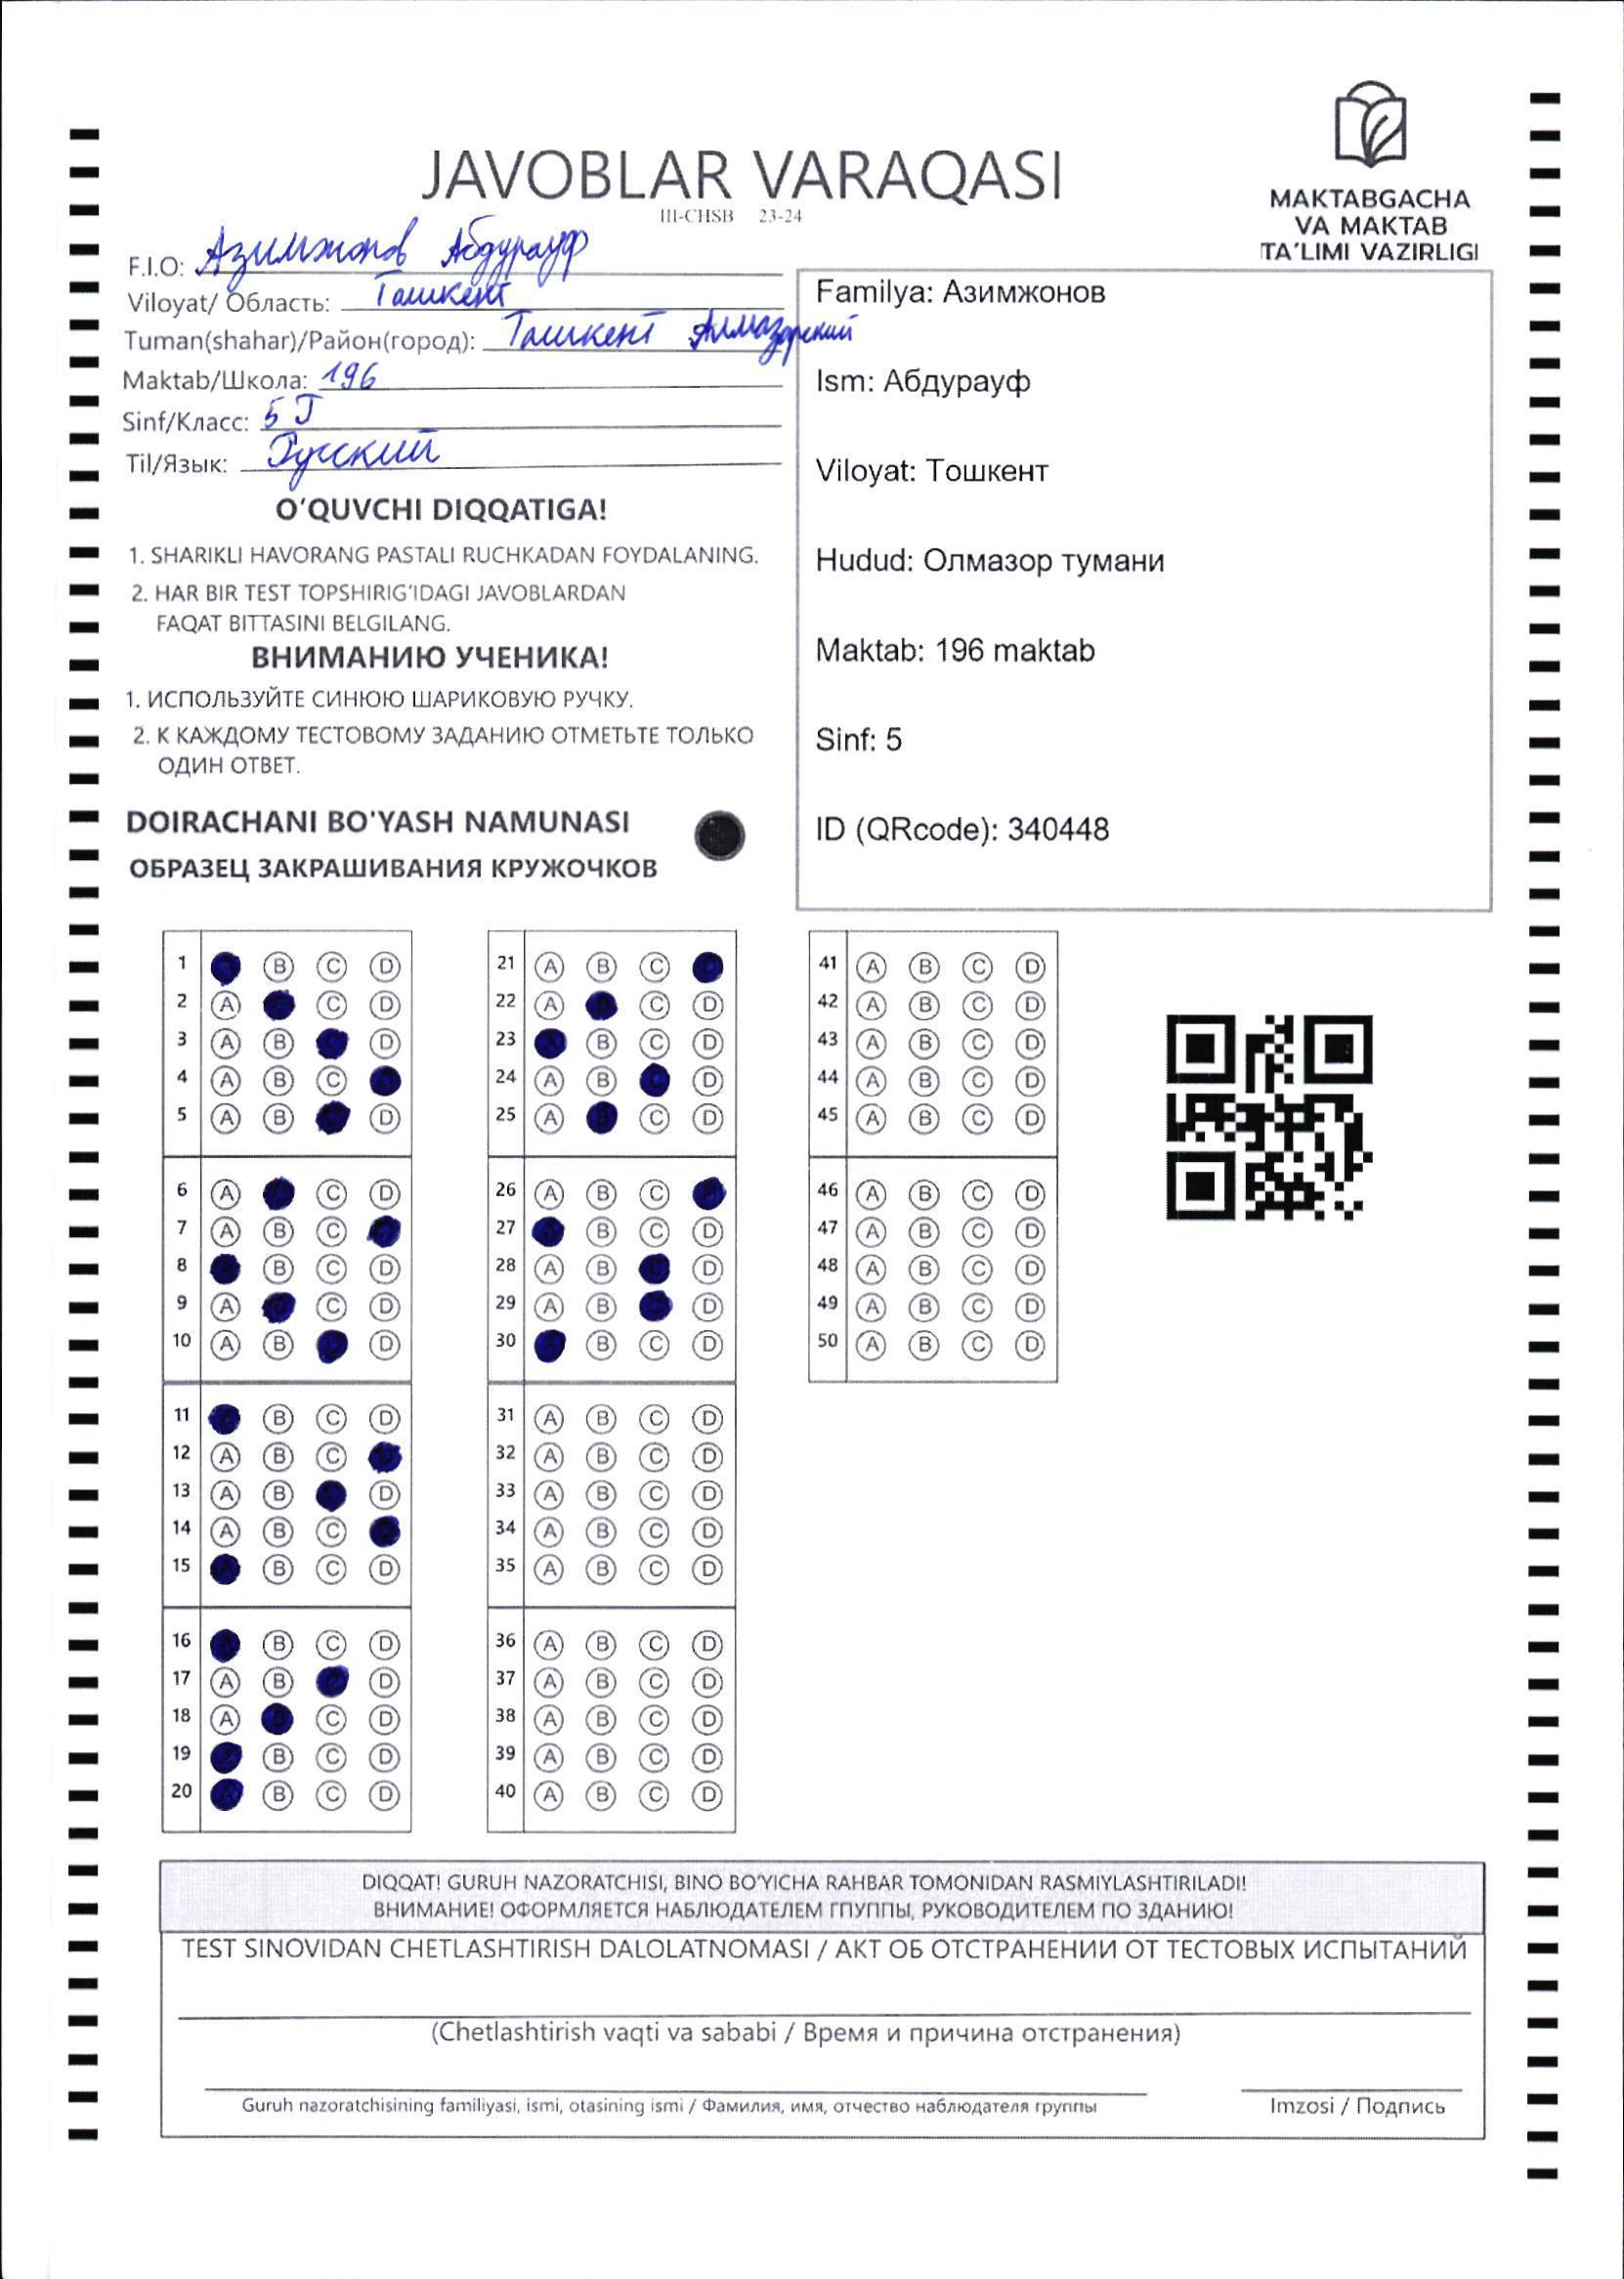 JAVOBLAR VARAQASI
III-CHSB 23-24
MAKTABGACHA
VA MAKTAB
TA'LIMI VAZIRLIGI
F.I.O: Азимжонов Абдурауф
Viloyat/ Область: Ташкент
Tuman(shahar)/Район(город): Ташкент Алмазарский
Maktab/Школа: 196
Sinf/Класс: 5 Г
Til/Язык: Русский
O'QUVCHI DIQQATIGA!
1. SHARIKLI HAVORANG PASTALI RUCHKADAN FOYDALANING.
2. HAR BIR TEST TOPSHIRIG'IDAGI JAVOBLARDAN
FAQAT BITTASINI BELGILANG.
ВНИМАНИЮ УЧЕНИКА!
1. ИСПОЛЬЗУЙТЕ СИНЮЮ ШАРИКОВУЮ РУЧКУ.
2. К КАЖДОМУ ТЕСТОВОМУ ЗАДАНИЮ ОТМЕТЬТЕ ТОЛЬКО
ОДИН ОТВЕТ.
DOIRACHANI BO'YASH NAMUNASI
ОБРАЗЕЦ ЗАКРАШИВАНИЯ КРУЖОЧКОВ
Familya: Азимжонов
Ism: Абдурауф
Viloyat: Тошкент
Hudud: Олмазор тумани
Maktab: 196 maktab
Sinf: 5
ID (QRcode): 340448
1 B C D
2 A C D
3 A B D
4 A B C
5 A B D
6 A C D
7 A B C
8 B C D
9 A C D
10 A B D
11 B C D
12 A B C
13 A B D
14 A B C
15 B C D
16 B C D
17 A B D
18 A B C D
19 B C D
20 B C D
21 A B C
22 A C D
23 B C D
24 A B D
25 A C D
26 A B C
27 B C D
28 A B C D
29 A B D
30 B C D
31 A B C D
32 A B C D
33 A B C D
34 A B C D
35 A B C D
36 A B C D
37 A B C D
38 A B C D
39 A B C D
40 A B C D
41 A B C D
42 A B C D
43 A B C D
44 A B C D
45 A B C D
46 A B C D
47 A B C D
48 A B C D
49 A B C D
50 A B C D
DIQQAT! GURUH NAZORATCHISI, BINO BO'YICHA RAHBAR TOMONIDAN RASMIYLASHTIRILADI!
ВНИМАНИЕ! ОФОРМЛЯЕТСЯ НАБЛЮДАТЕЛЕМ ГПУППЫ, РУКОВОДИТЕЛЕМ ПО ЗДАНИЮ!
TEST SINOVIDAN CHETLASHTIRISH DALOLATNOMASI / АКТ ОБ ОТСТРАНЕНИИ ОТ ТЕСТОВЫХ ИСПЫТАНИЙ
(Chetlashtirish vaqti va sababi / Время и причина отстранения)
Guruh nazoratchisining familiyasi, ismi, otasining ismi / Фамилия, имя, отчество наблюдателя группы
Imzosi / Подпись